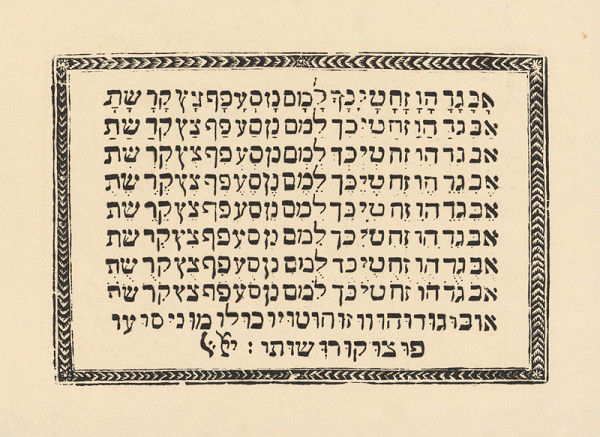 אבגד הוזחטיכך למם נןסעפף צץ קר שת
אבגד הוזחטיכך למם נןסעפף צץ קר שת
אבגד הוזחטיכך למם נןסעפף צץ קר שת
אבגד הוזחטיכך למם נןסעפף צץ קר שת
אבגד הוזחטיכך למם נןסעפף צץ קר שת
אבגד הוזחטיכך למם נןסעפף צץ קר שת
אבגד הוזחטיכך למם נןסעפף צץ קר שת
אבגד הוזחטיכך למם נןסעפף צץ קר שת
אובוגודוהוווזוחוטויוכולומונוסועו
פוצוקורושותו :